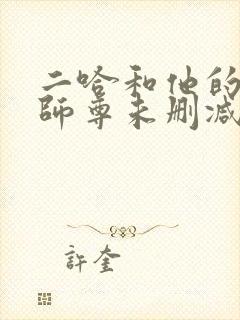 二哈和他的
師尊未删减
許奎